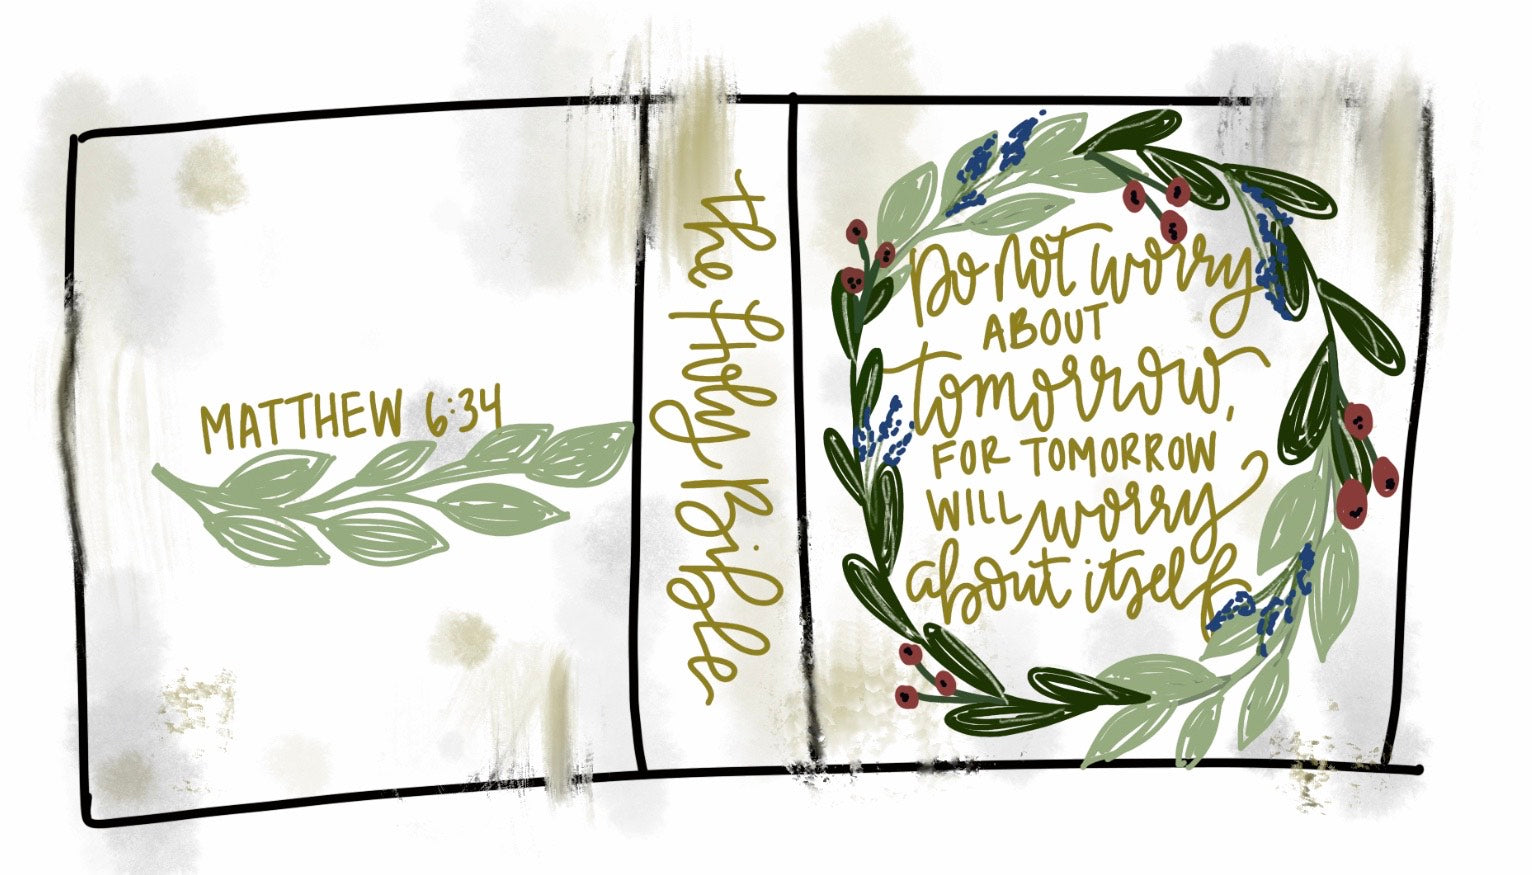 MATTHEW 6:34
the Holy Bible
Do not worry
ABOUT
tomorrow,
FOR TOMORROW
WILL worry
about itself